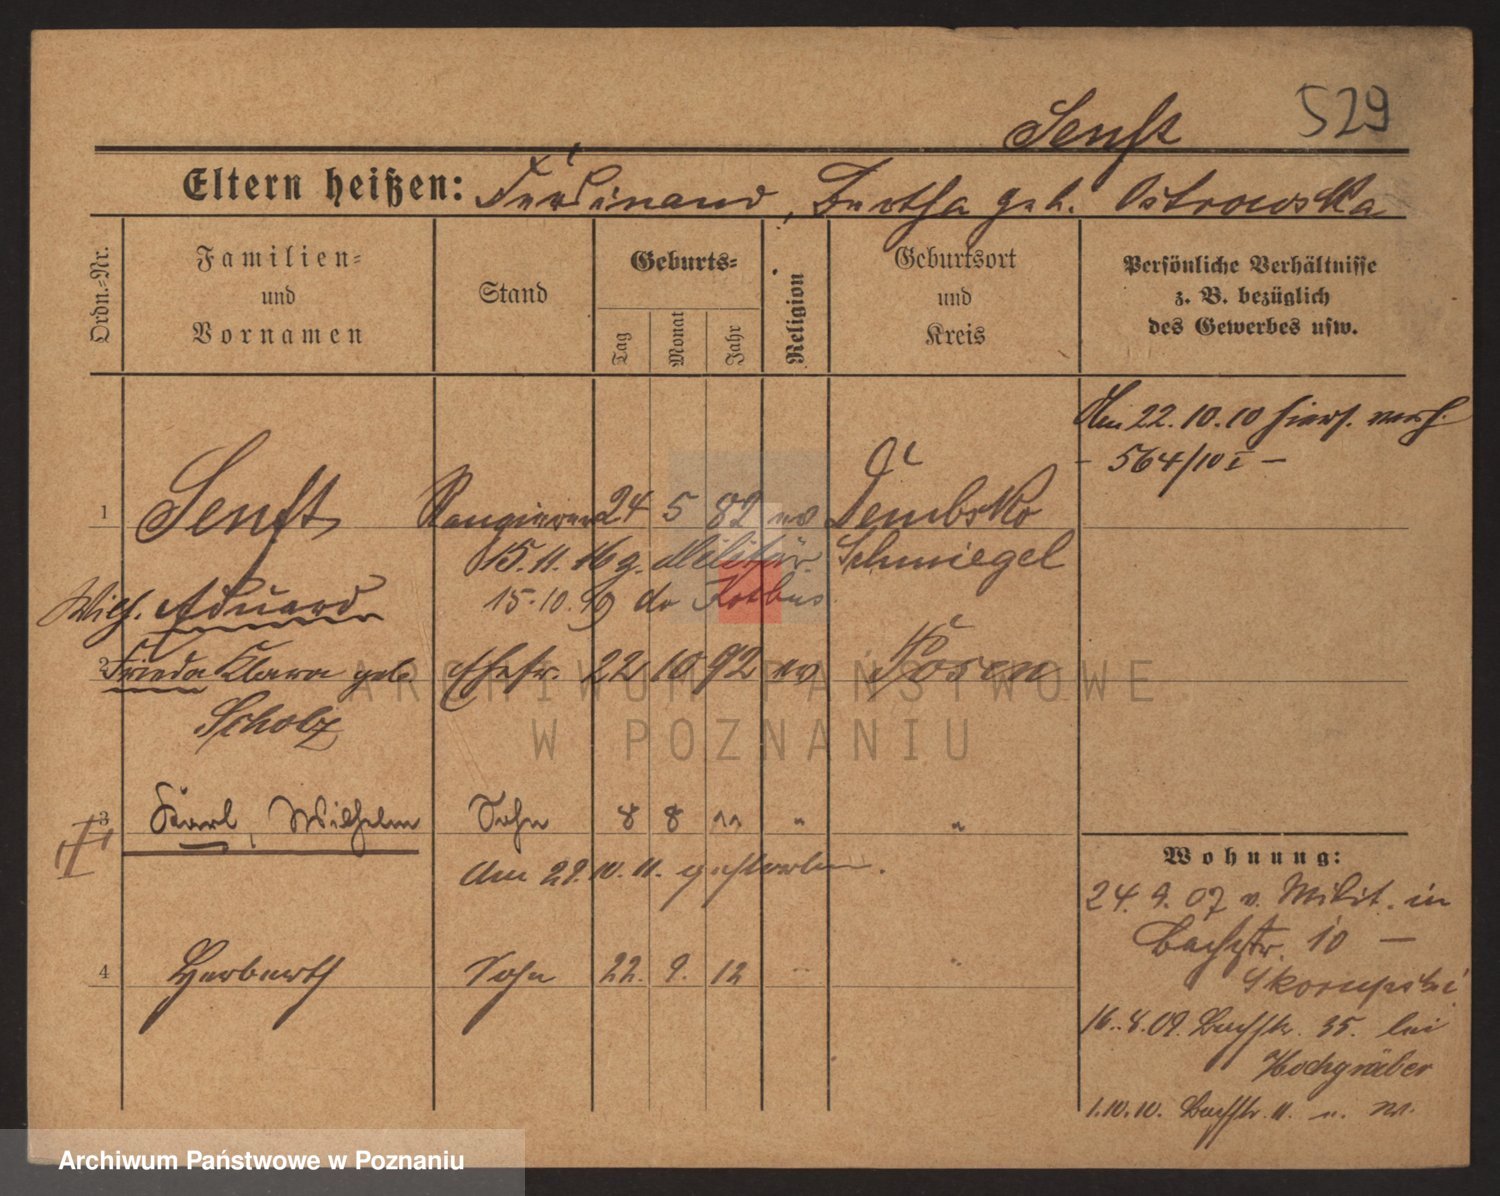 529
Senft
Eltern heißen: Ferdinand, Bertha geb. Ostrowska
Ordn.-Nr.
Familien-
und
Vornamen
Stand
Geburts-
Tag
Monat
Jahr
Religion
Geburtsort
und
Kreis
Persönliche Verhältnisse
z. B. bezüglich
des Gewerbes usw.
Am 22.10.10 hiers. verh.
- 564/10 I -
1 Senft Rangierer 24 5 82 ev Dembsko
15.11.16 g. Militär Schmiegel
Wilh. Eduard 15.10. do Kotbus
2 Frieda Klara geb. Ehefr. 22 10 92 ev Posen
Scholz
3 Karl, Wilhelm Sohn 8 8 11 " "
Am 29.10.11. gestorben.
4 Herberth Sohn 22. 9. 12 " "
Wohnung:
24. 9. 07 v. Milit. in
Bachstr. 10 —
Skorupski
16. 8. 09. Bachstr. 35. bei
Hochgräber
1.10.10. Bachstr. 11
ARCHIWUM PAŃSTWOWE
W POZNANIU
Archiwum Państwowe w Poznaniu